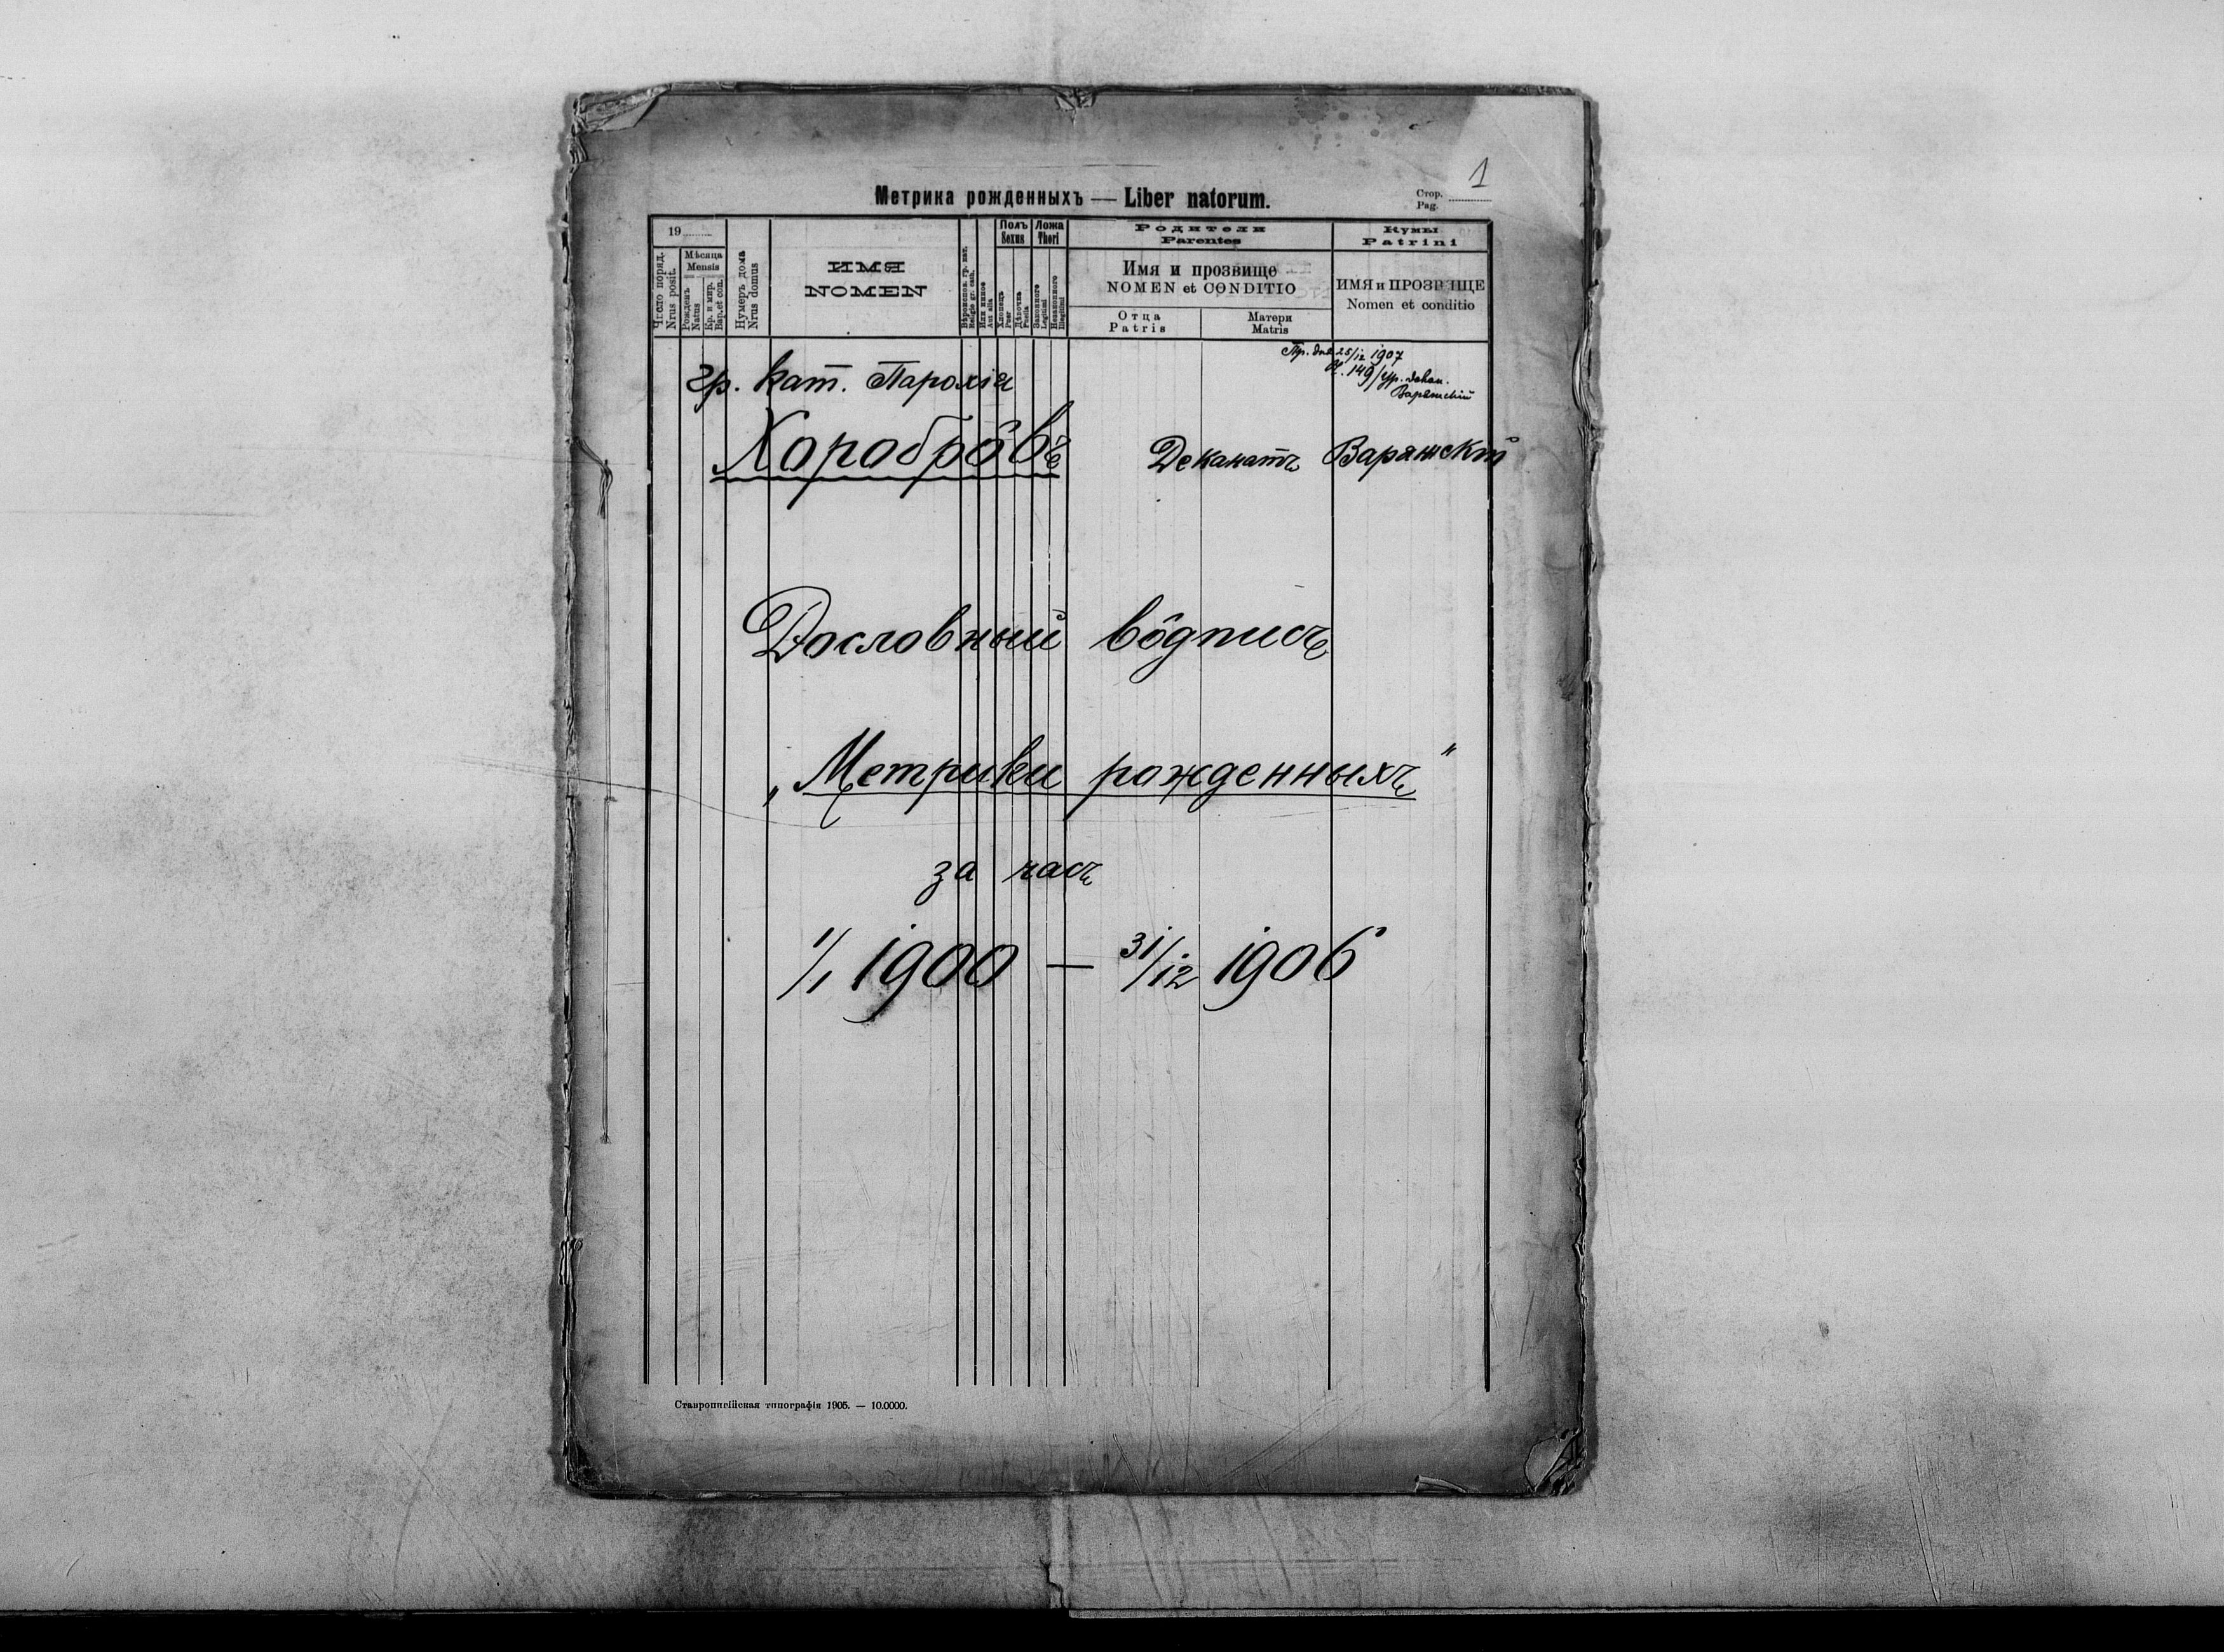 1
Метрика рожденныхъ — Liber natorum.
Стор.
Pag.
19
Число поряд.
Nrus posit.
Мѣсяца
Mensis
Рожденъ
Natus
Кр. и мир.
Bap. et con.
Нумеръ дома
Nrus domus
ИМЯ
NOMEN
Religio gr. cath.
Или инное
Aut alia
Полъ
Sexus
Хлопецъ
Puer
Дѣвочка
Puella
Ложа
Thori
Законного
Legitimi
Незаконного
Illegitimi
Родители
Parentes
Имя и прозвище
NOMEN et CONDITIO
Отца
Patris
Матери
Matris
Кумы
Patrini
ИМЯ и ПРОЗВИЩЕ
Nomen et conditio
Пр. дня 25/12 1907
149/ гр. декан.
гр. кат. Парохія
Хороброва
Деканатъ Варяжскій
Дословный вôдписъ
„Метрики рожденныхъ"
за часъ
1/1 1900 — 31/12 1906
Ставропигійская типографія 1905. — 10.0000.